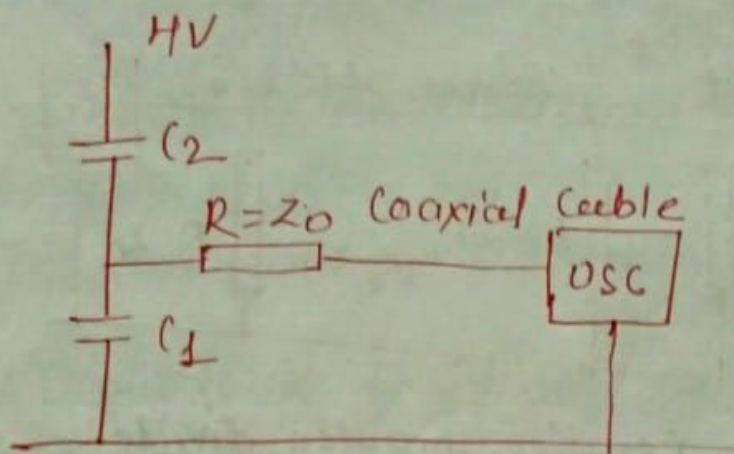 HV
C2
R=Z0 Coaxial Cable
OSC
C1